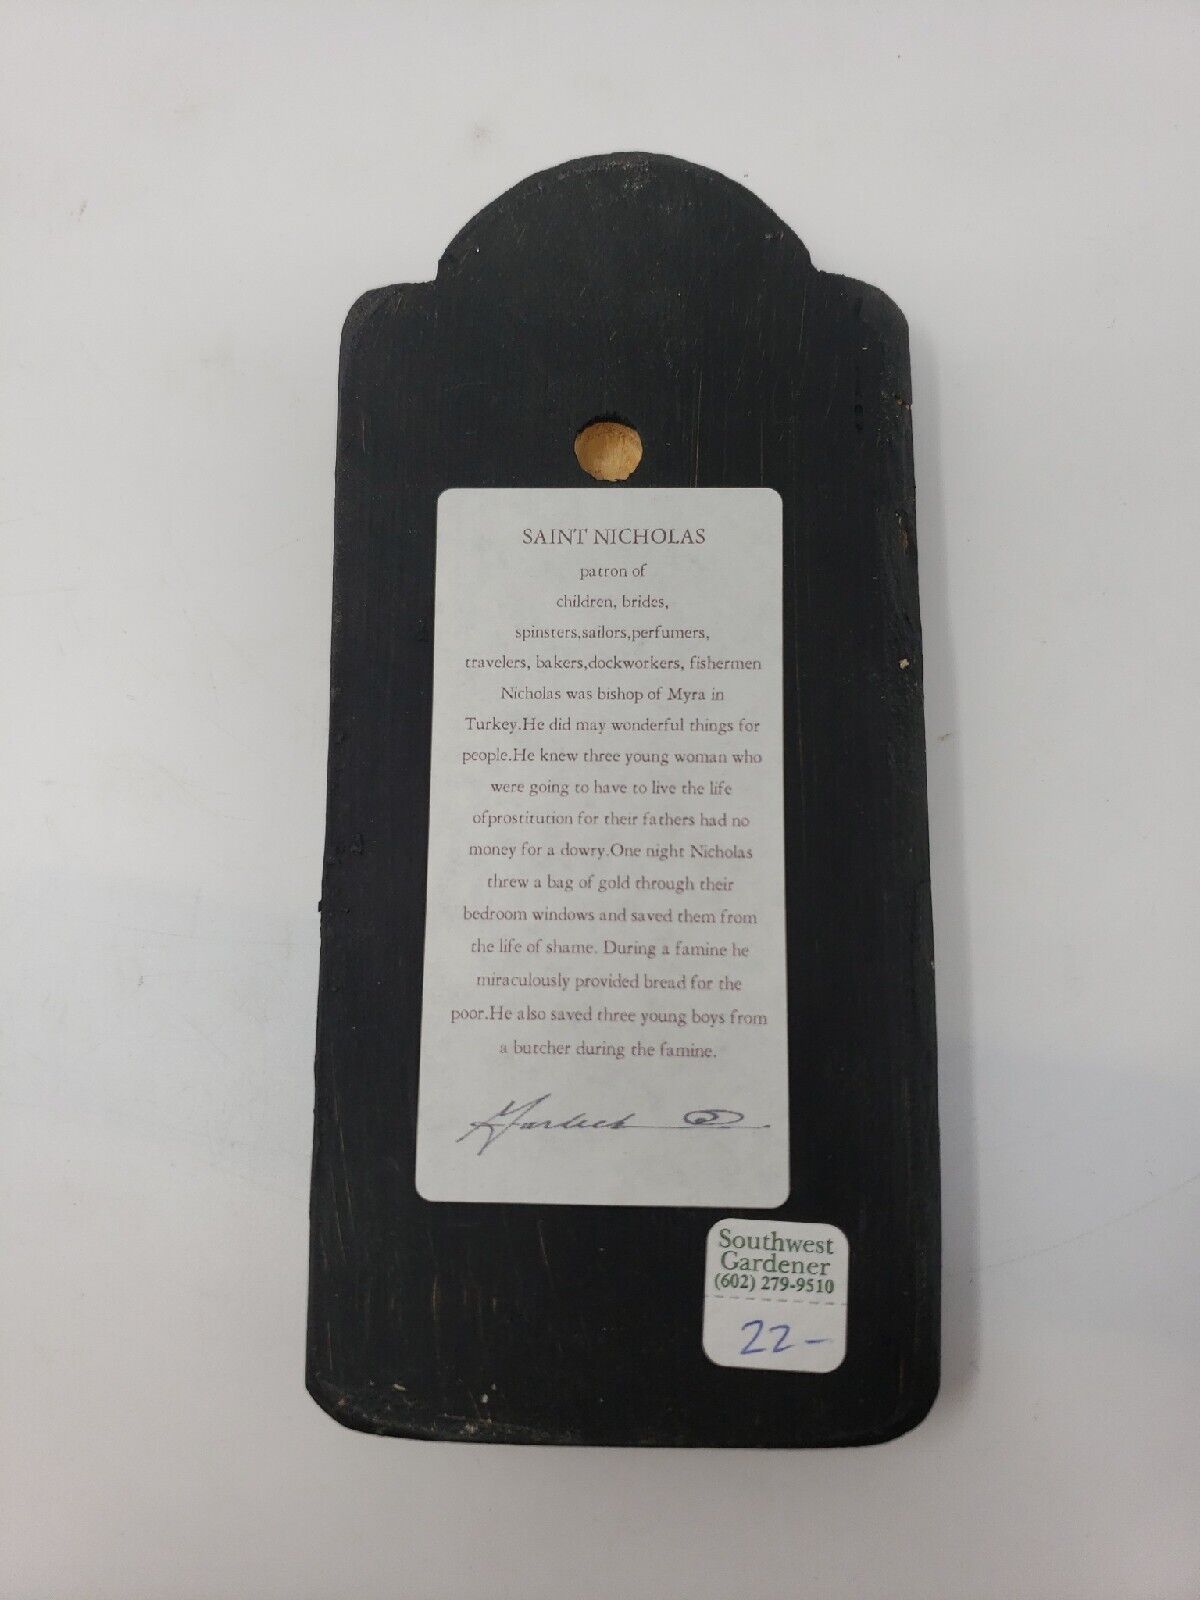 SAINT NICHOLAS
patron of
children, brides,
spinsters,sailors,perfumers,
travelers, bakers,dockworkers, fishermen
Nicholas was bishop of Myra in
Turkey.He did may wonderful things for
people.He knew three young woman who
were going to have to live the life
ofprostitution for their fathers had no
money for a dowry.One night Nicholas
threw a bag of gold through their
bedroom windows and saved them from
the life of shame. During a famine he
miraculously provided bread for the
poor.He also saved three young boys from
a butcher during the famine.
Southwest
Gardener
(602) 279-9510
22-